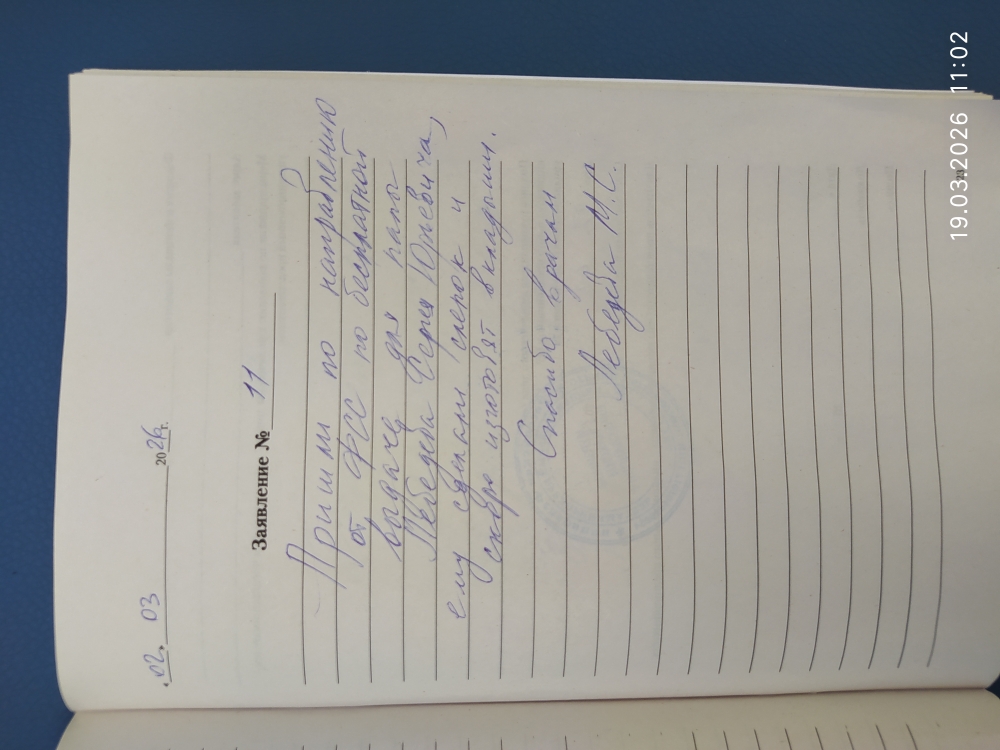 "02" 03 2026г.
Заявление № 11
Пришли по направлению
от ФСС по бесплатной
выдаче для папы
Лебедева Сергея Юрьевича,
ему сделали слепок и
скоро изготовят вкладыши.
Спасибо врачам
Лебедева М.С.
19.03.2026 11:02